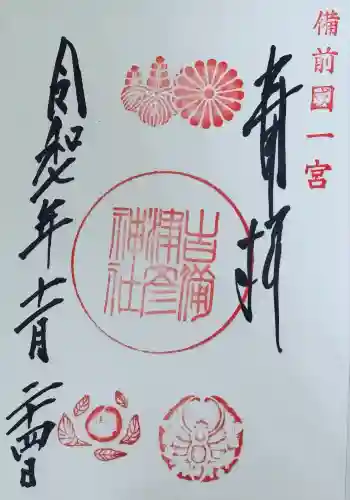 備前國一宮
奉拝
吉備津彦神社
令和 年十一月二十四日